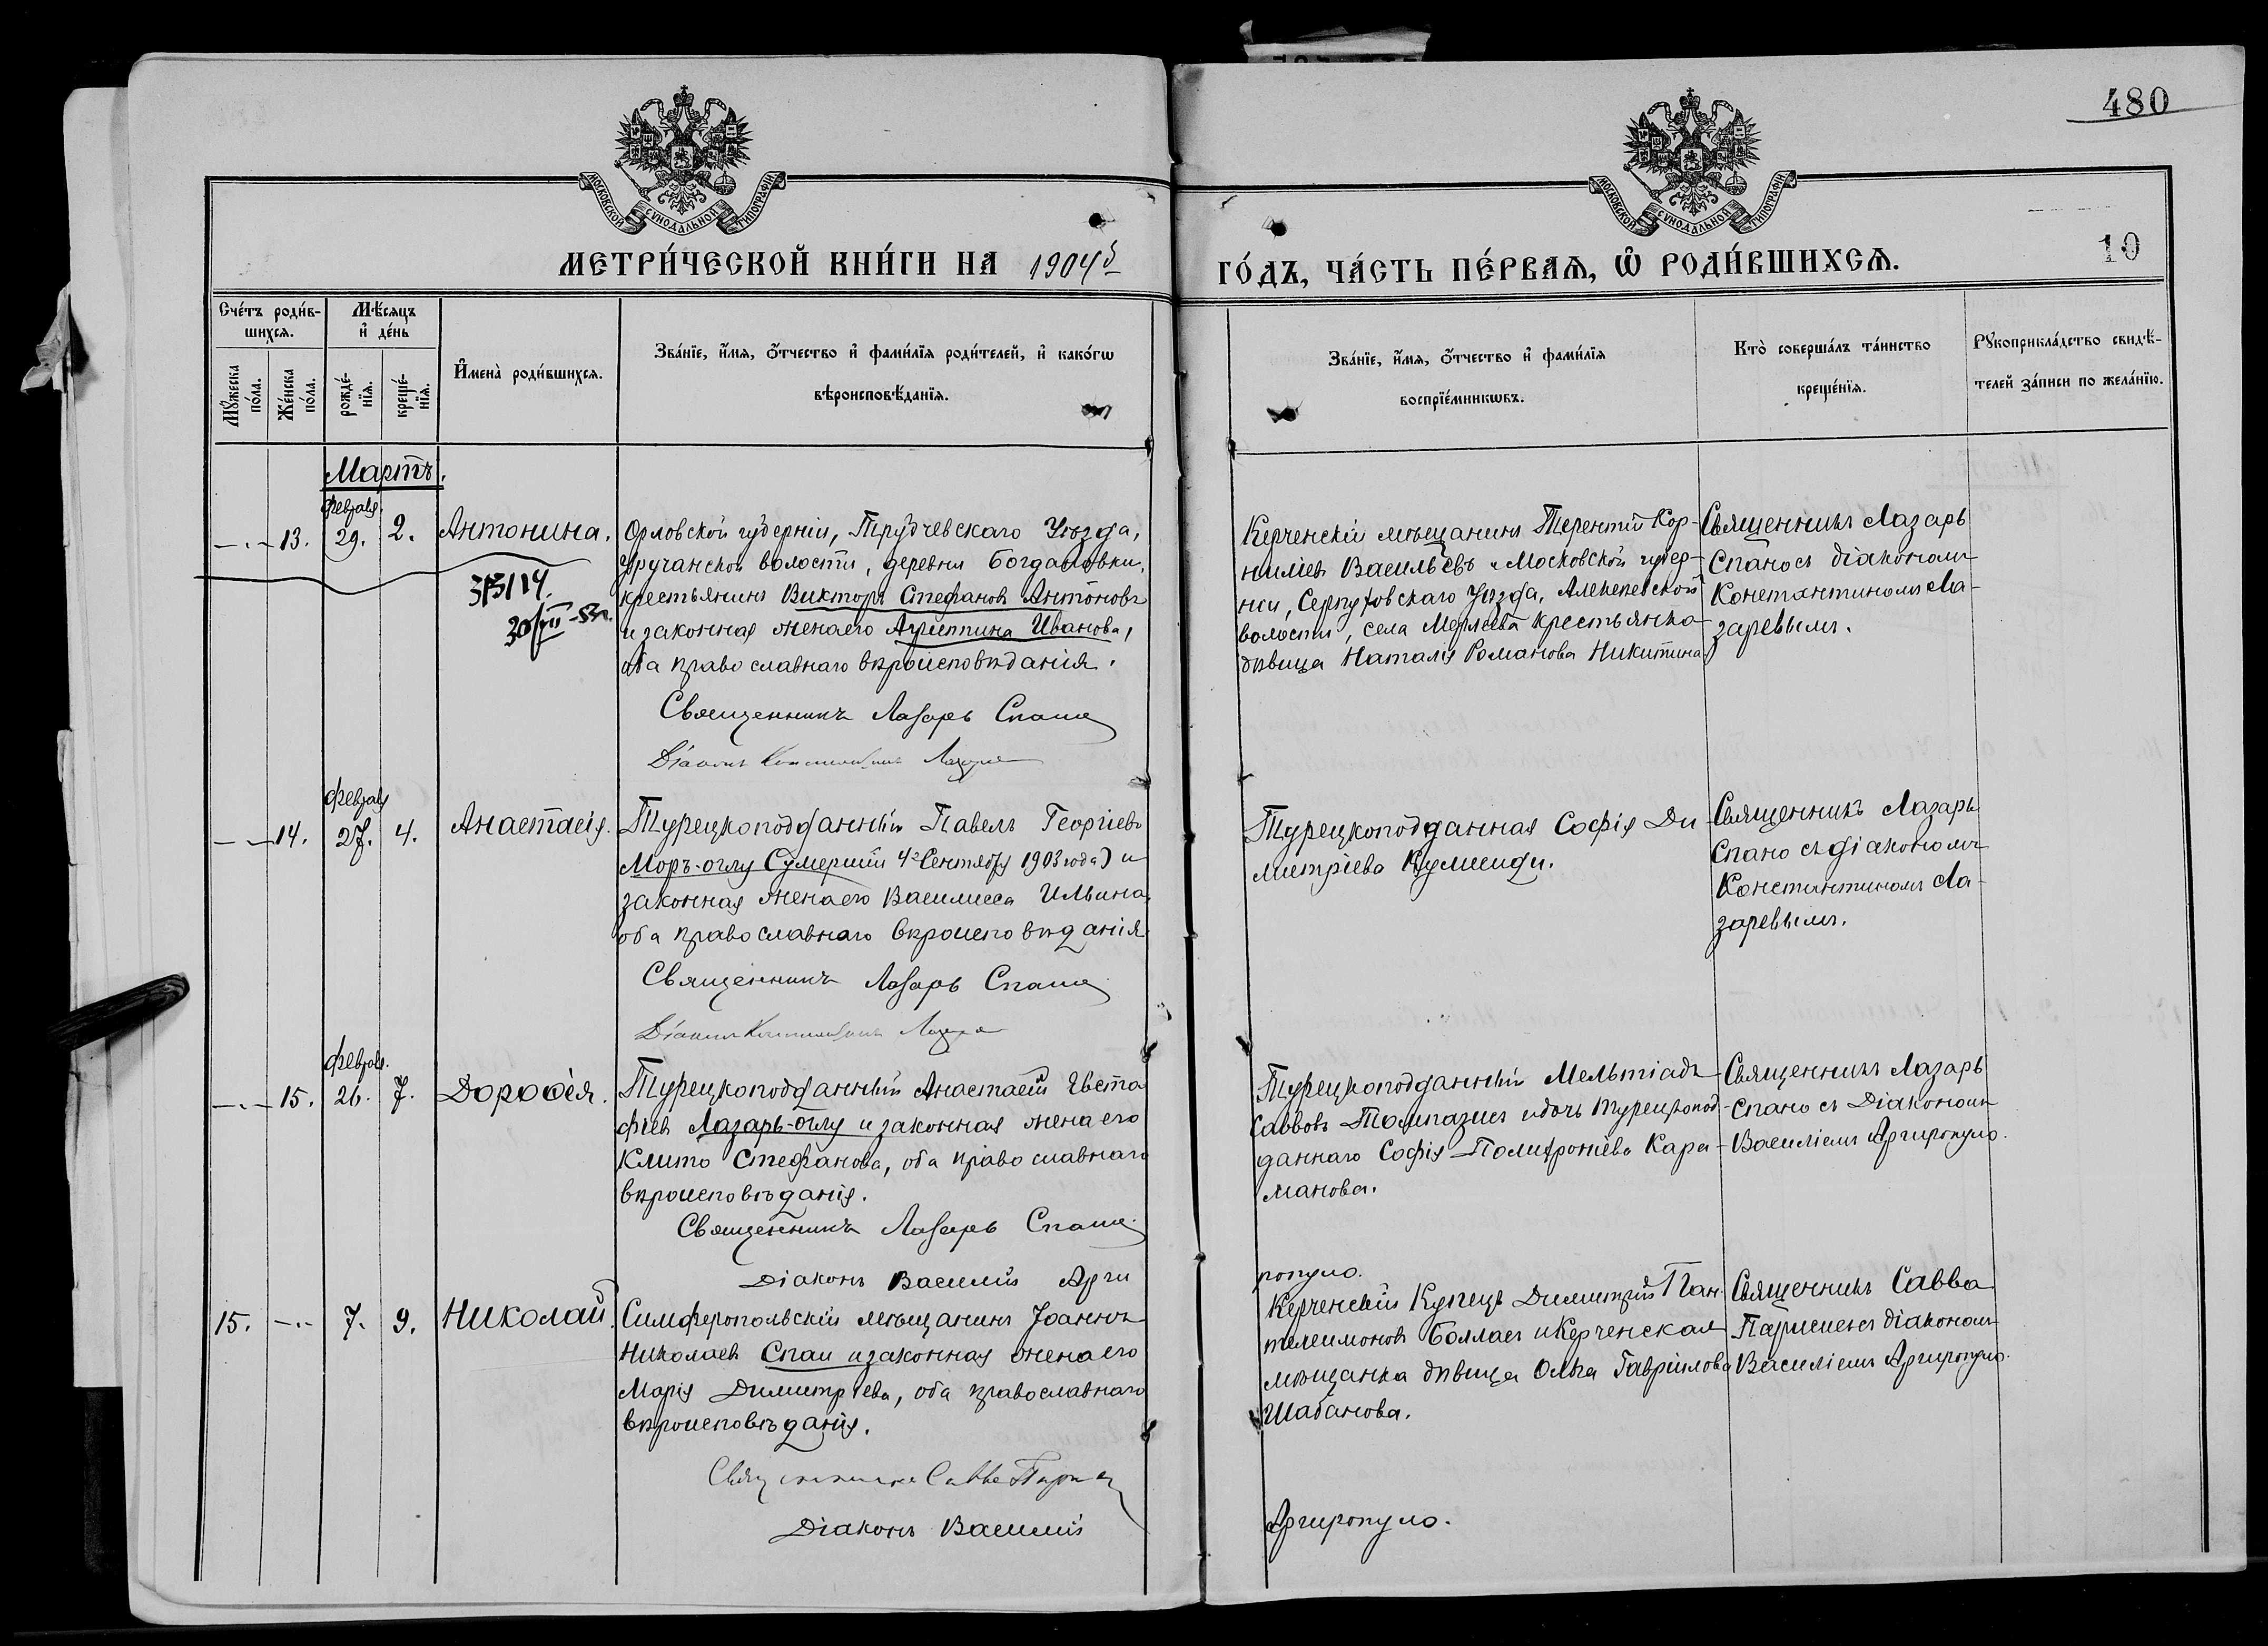 480
МОСКОВСКОЙ СѴНОДАЛЬНОЙ ТИПОГРАФІИ
МОСКОВСКОЙ СѴНОДАЛЬНОЙ ТИПОГРАФІИ
МЕТРИ́ЧЕСКОЙ КНИ́ГИ НА 1904й
ГО́ДЪ, ЧА́СТЬ ПЕ́РВАѦ, Ѡ РОДИ́ВШИХСѦ.
10
Сче́тъ роди́в-
шихсѧ.
Мꙋ́жеска по́ла.
Же́нска по́ла.
Мѣ́сѧцъ
и҆ де́нь
рожде́-
нїѧ.
креще́-
нїѧ.
И҆мена̀ роди́вшихсѧ.
Зва́нїе, и҆́мѧ, ѻ҆́тчество и҆ фами́лїѧ роди́телей, и҆ како́гѡ
вѣроисповѣ́данїѧ.
Зва́нїе, и҆́мѧ, ѻ҆́тчество и҆ фами́лїѧ
воспрїе́мникѡвъ.
Кто̀ соверша́лъ та́инство
креще́нїѧ.
Рꙋкоприкла́дство свидѣ́-
телей за́писи по жела́нїю.
Мартъ.
февраля
13. 29. 2. Антонина.
Орловской губерніи, Трубчевскаго Уѣзда,
Уручанской волости, деревни Богдановки,
крестьянинъ Викторъ Стефановъ Антоновъ
и законная жена его Агриппина Иванова,
оба православнаго вѣроисповѣданія.
Священникъ Лазарь Спано
Діаконъ Константинъ Лазаревъ
Керченскій мѣщанинъ Терентій Кор-
ниліевъ Васильевъ и Московской губер-
ніи, Серпуховскаго Уѣзда,
волости, села крестьянка
дѣвица Наталія Романова Никитина.
Священникъ Лазарь
Спано съ діакономъ
Константиномъ Ла-
заревымъ.
февраля
14. 27. 4. Анастасія.
Турецкоподданный Павелъ Георгіевъ
Моръ-оглу (умершій 4го Сентября 1903 года) и
законная жена его Василисса Ильина,
оба православнаго вѣроисповѣданія.
Священникъ Лазарь Спано
Діаконъ Константинъ Лазаревъ
Турецкоподданная Софія Ди-
митріева
Священникъ Лазарь
Спано съ діакономъ
Константиномъ Ла-
заревымъ.
февраля.
15. 26. 7. Дороѳея.
Турецкоподданный Анастасій Евста-
фіевъ Лазарь-оглу и законная жена его
Клито Стефанова, оба православнаго
вѣроисповѣданія.
Священникъ Лазарь Спано.
Діаконъ Василій Арги
ропуло.
Турецкоподданный Мельтіадъ
Саввовъ и дочь турецкопод-
даннаго Софія Полихроніева Кара-
манова.
Священникъ Лазарь
Спано съ Діакономъ
Василіемъ Аргиропуло.
15. 7. 9. Николай.
Симферопольскій мѣщанинъ Іоаннъ
Николаевъ Спаи и законная жена его
Марія Димитріева, оба православнаго
вѣроисповѣданія.
Священникъ Савва
Діаконъ Василій
Аргиропуло.
Керченскій Купецъ Димитрій Пан-
телеимоновъ и Керченская
мѣщанка дѣвица Ольга Гавріилова
Шабанова.
Священникъ Савва
съ діакономъ
Василіемъ Аргиропуло.